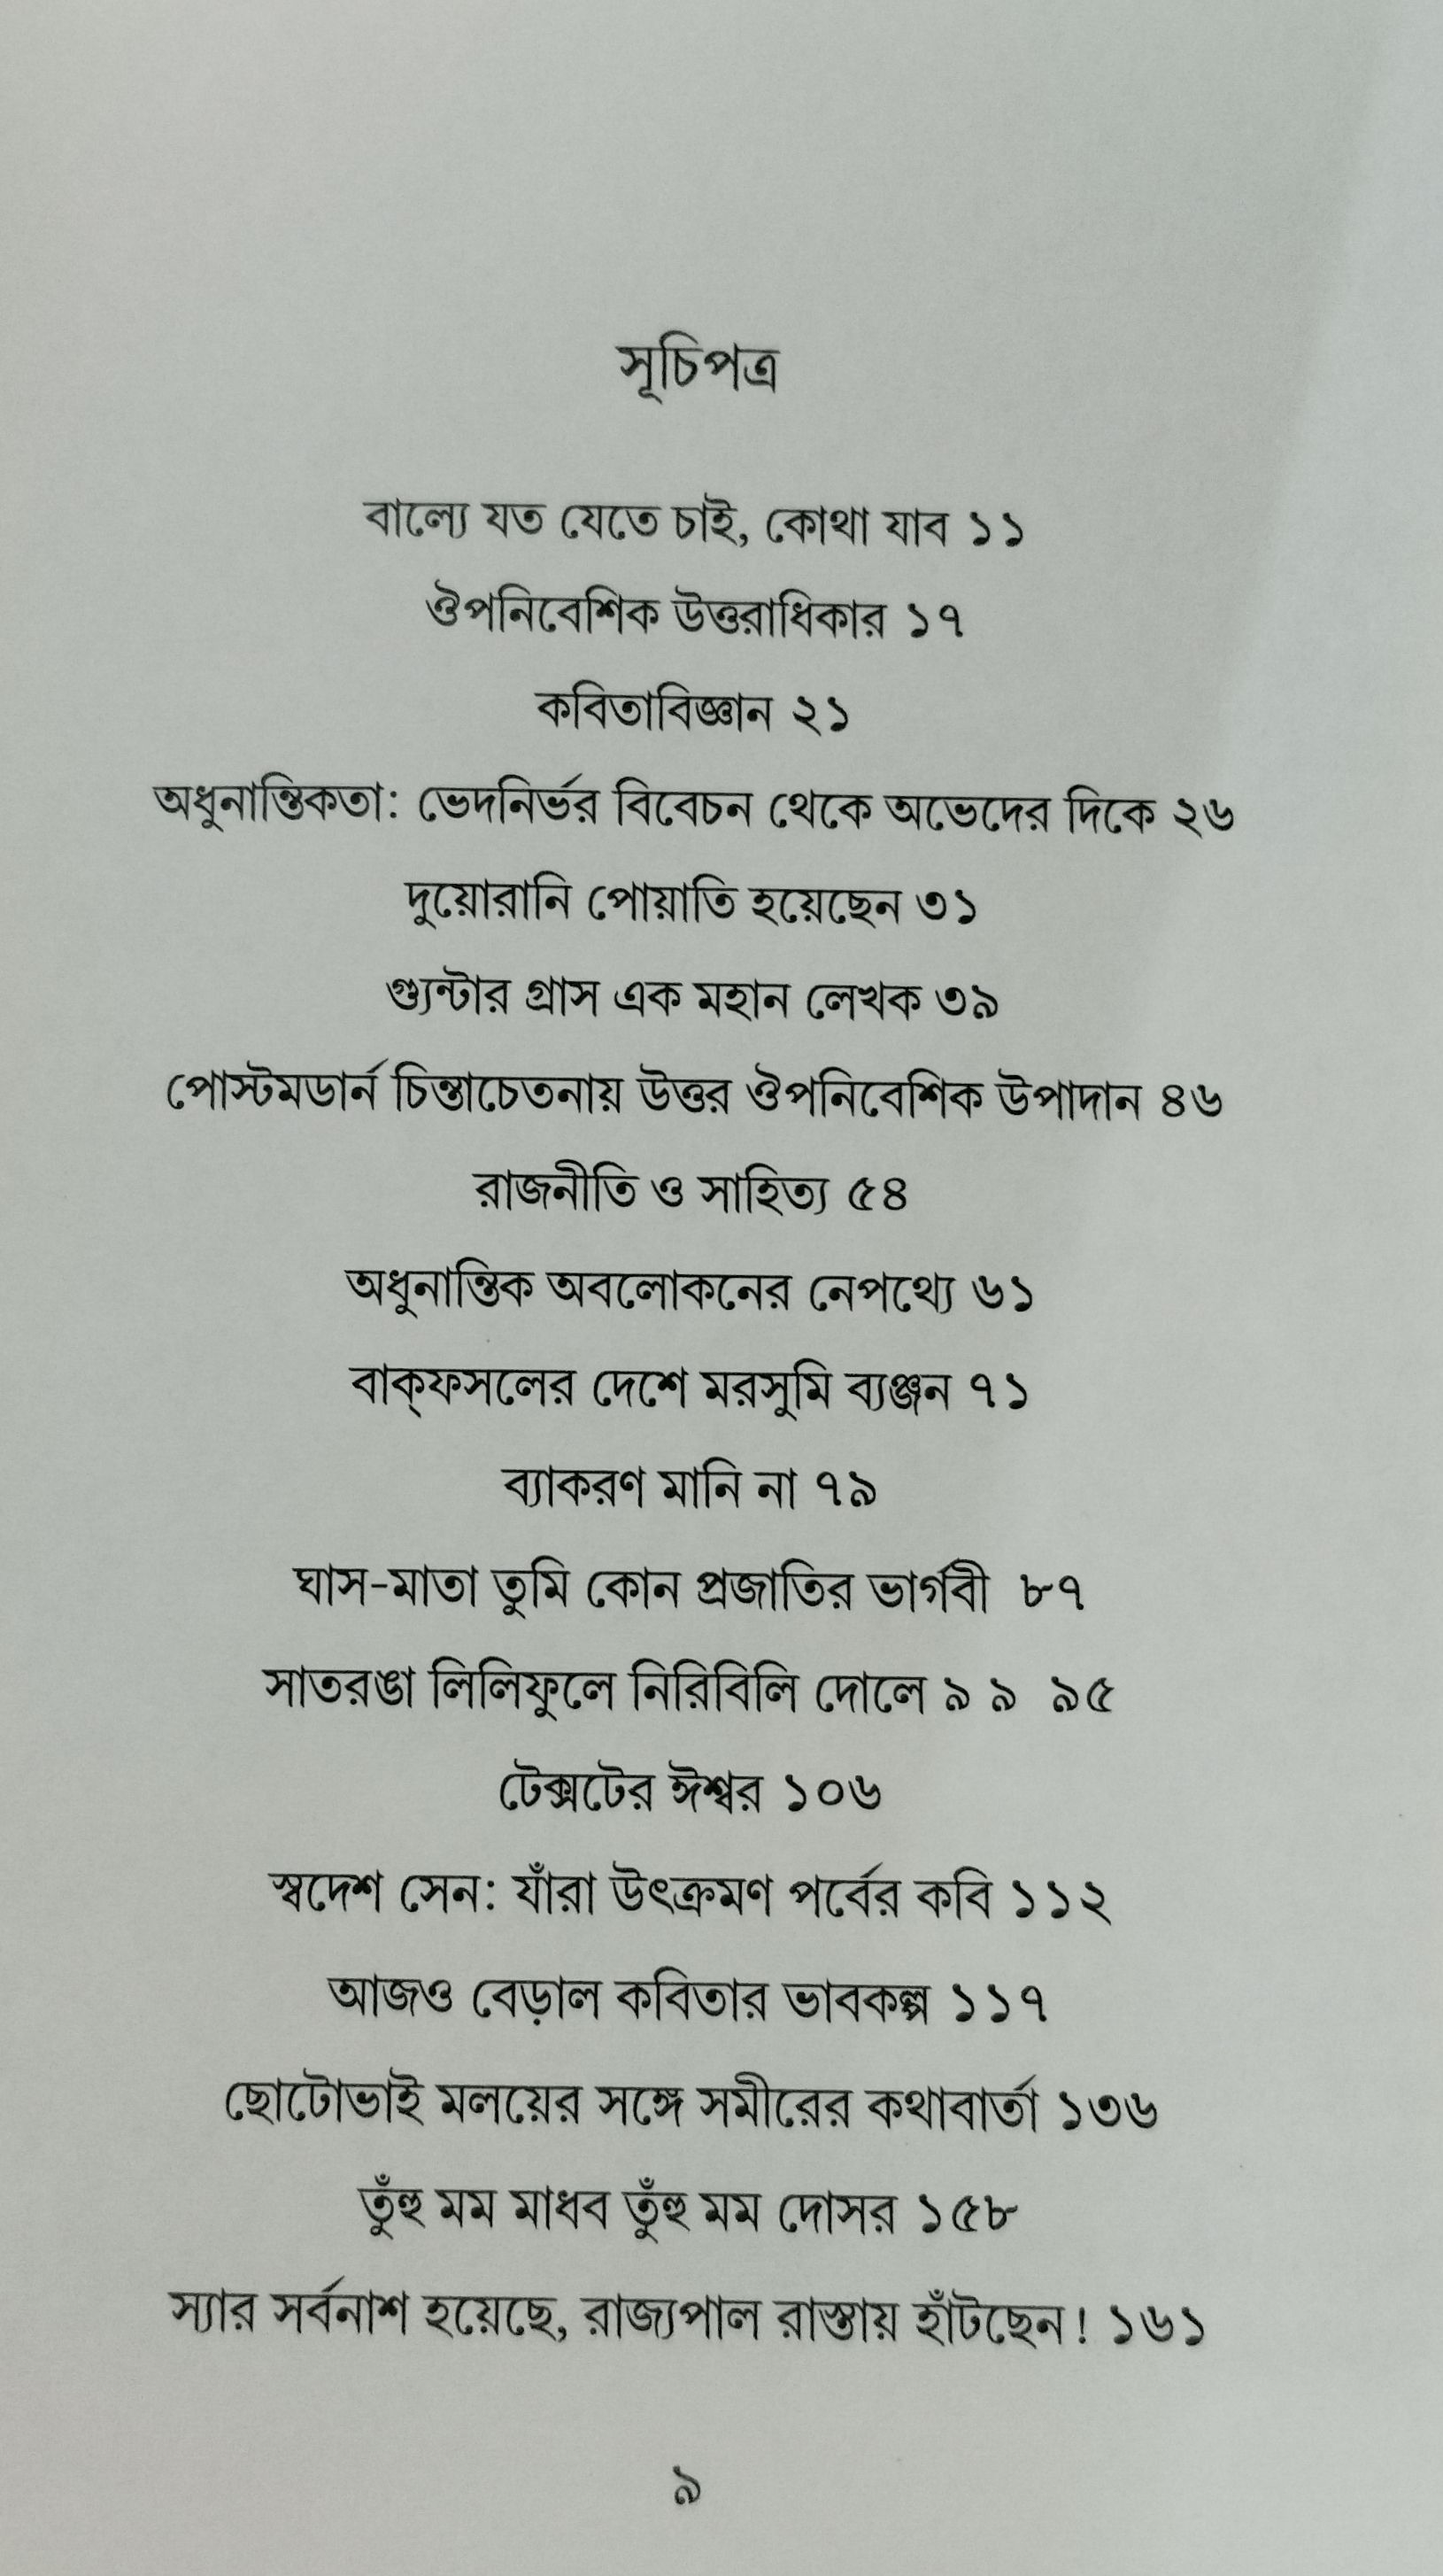 সূচিপত্র
বাল্যে যত যেতে চাই, কোথা যাব ১১
ঔপনিবেশিক উত্তরাধিকার ১৭
কবিতাবিজ্ঞান ২১
অধুনান্তিকতা: ভেদনির্ভর বিবেচন থেকে অভেদের দিকে ২৬
দুয়োরানি পোয়াতি হয়েছেন ৩১
গ্যুন্টার গ্রাস এক মহান লেখক ৩৯
পোস্টমডার্ন চিন্তাচেতনায় উত্তর ঔপনিবেশিক উপাদান ৪৬
রাজনীতি ও সাহিত্য ৫৪
অধুনান্তিক অবলোকনের নেপথ্যে ৬১
বাক্‌ফসলের দেশে মরসুমি ব্যঞ্জন ৭১
ব্যাকরণ মানি না ৭৯
ঘাস-মাতা তুমি কোন প্রজাতির ভার্গবী ৮৭
সাতরঙা লিলিফুলে নিরিবিলি দোলে ৯ ৯ ৯৫
টেক্সটের ঈশ্বর ১০৬
স্বদেশ সেন: যাঁরা উৎক্রমণ পর্বের কবি ১১২
আজও বেড়াল কবিতার ভাবকল্প ১১৭
ছোটোভাই মলয়ের সঙ্গে সমীরের কথাবার্তা ১৩৬
তুঁহু মম মাধব তুঁহু মম দোসর ১৫৮
স্যার সর্বনাশ হয়েছে, রাজ্যপাল রাস্তায় হাঁটছেন! ১৬১
৯